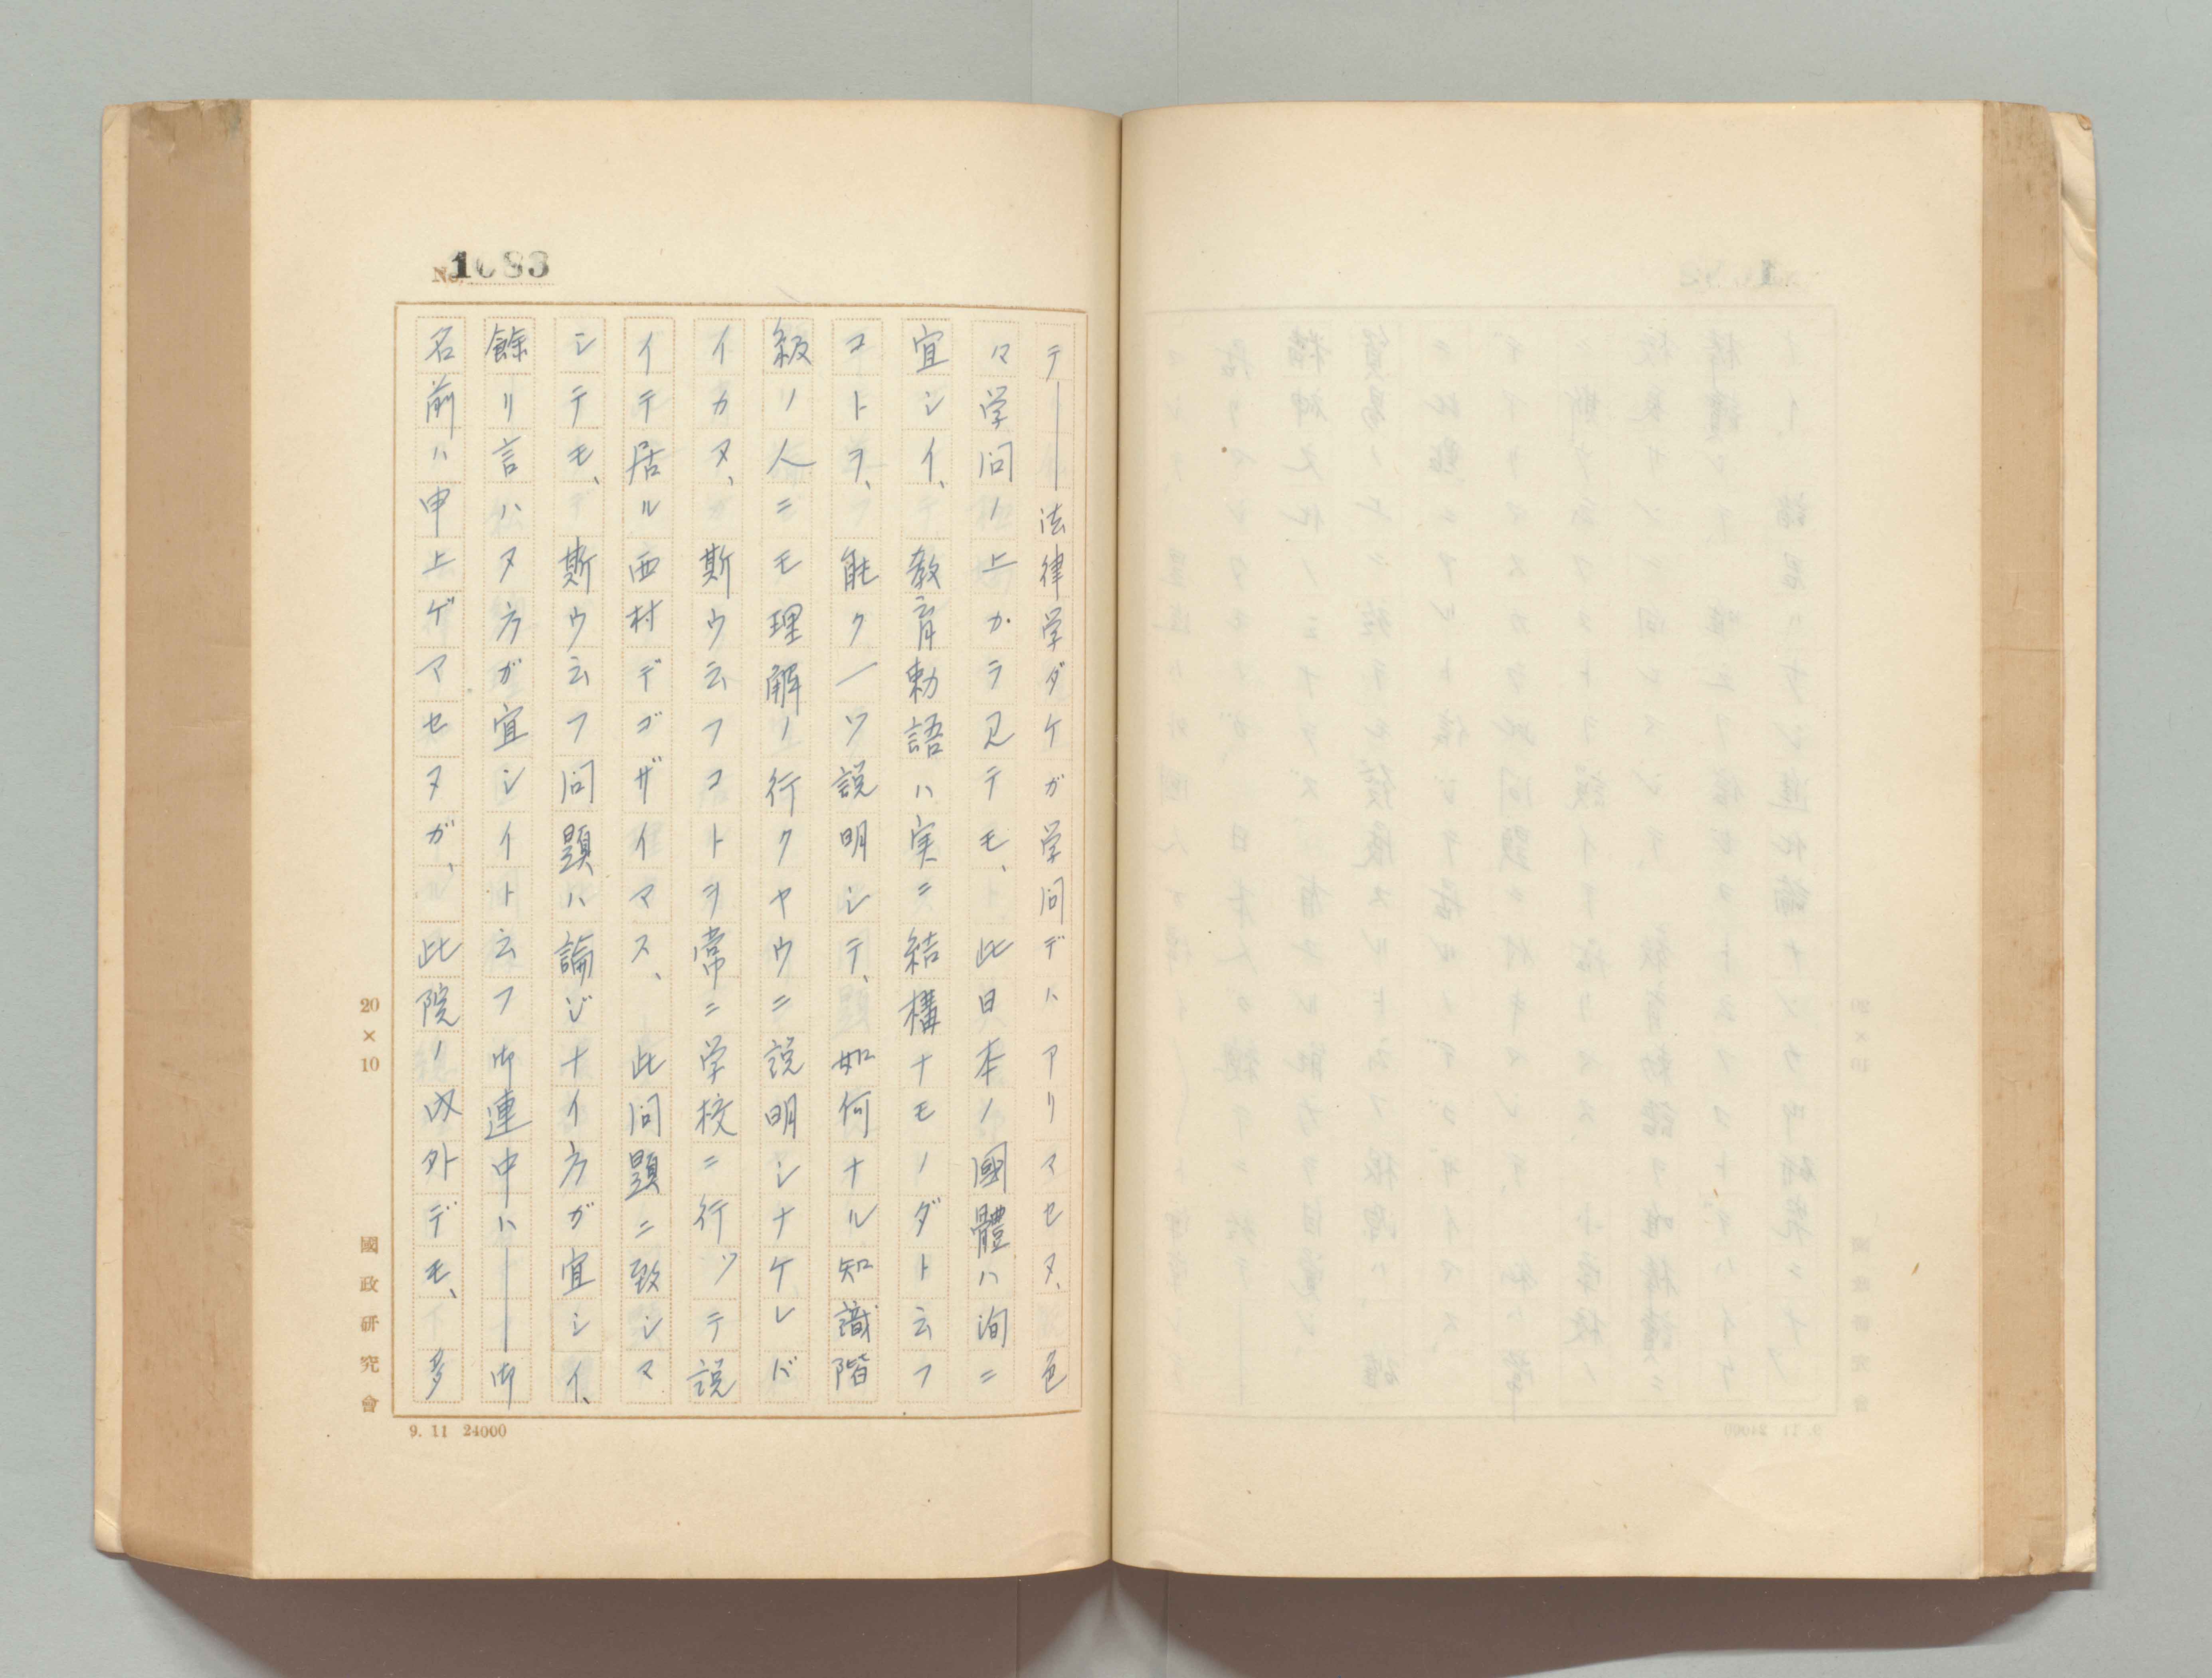 No. 1083
テ――法律学ダケガ学问デハアリマセヌ、色
々学问ノ上カラ見テモ、此日本ノ國體ハ洵ニ
宜シイ、教育勅語ハ実ニ結構ナモノダト云フ
コトヲ、能ク一ツ説明シテ、如何ナル知識階
級ノ人ニモ理解ノ行クヤウニ説明シナケレバ
イカヌ、斯ウ云フコトヲ常ニ学校ニ行ツテ説
イテ居ル西村デゴザイマス、此问題ニ致シマ
シテモ、斯ウ云フ问題ハ論ジナイ方ガ宜シイ、
餘リ言ハヌ方ガ宜シイト云フ御連中ハ――御
名前ハ申上ゲマセヌガ、此院ノ内外デモ、多
20×10
國政研究會
9. 11 24000